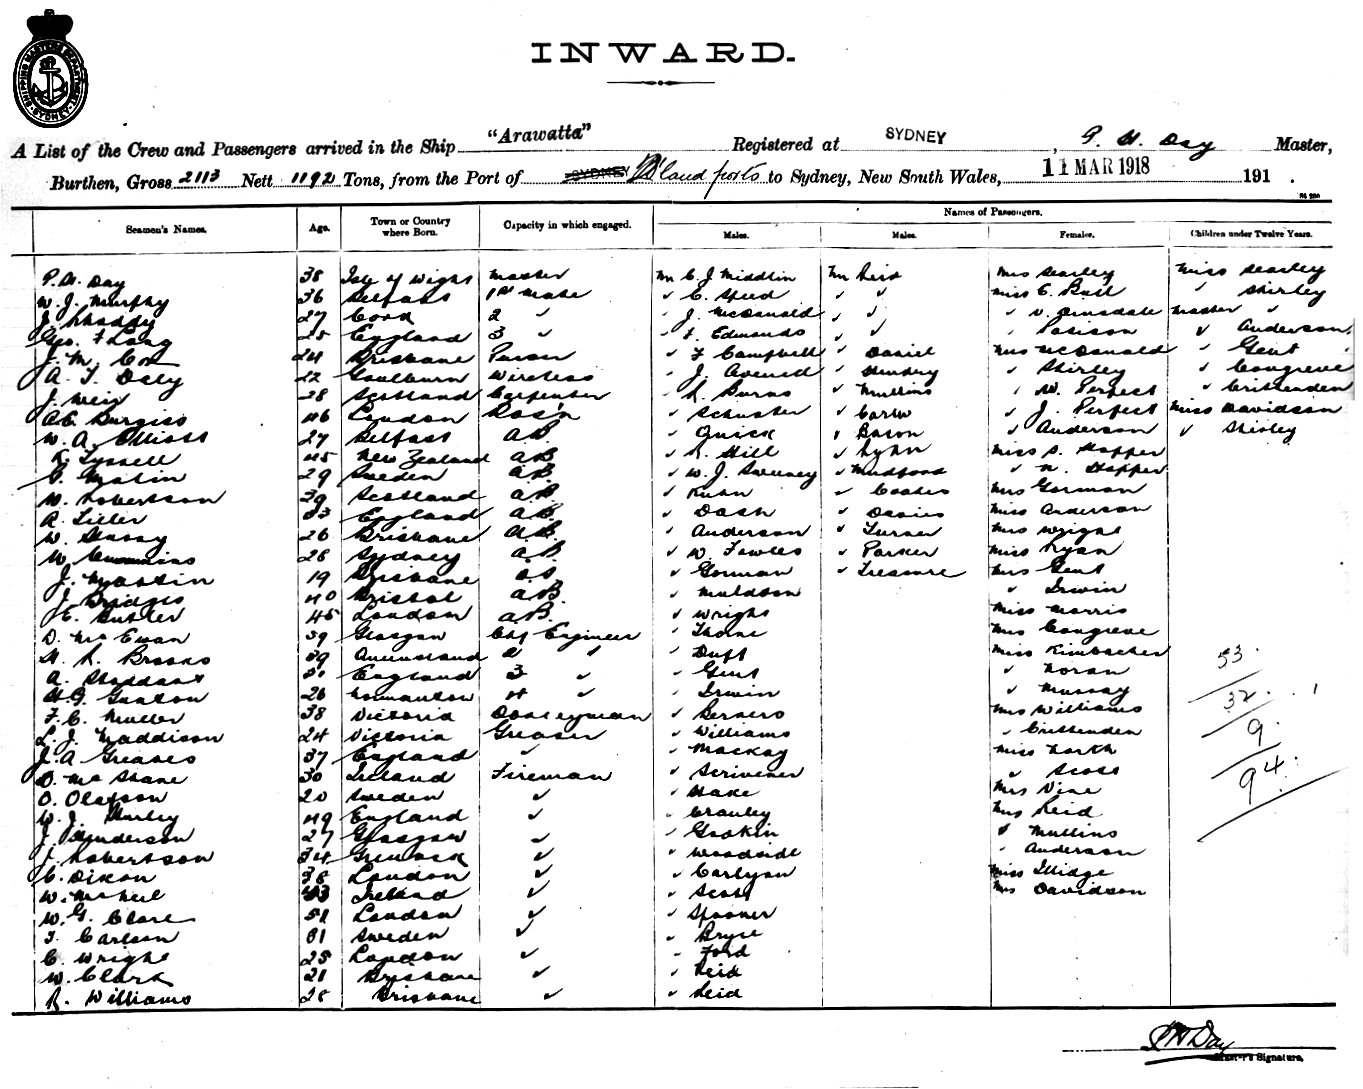 SHIPPING MASTERS DEPARTMENT SYDNEY
INWARD.
A List of the Crew and Passengers arrived in the Ship "Arawatta" Registered at SYDNEY, P. H. Day Master,
Burthen, Gross 2113 Nett 1192 Tons, from the Port of SYDNEY Q'land ports to Sydney, New South Wales, 11 MAR 1918 191 .
Names of Passengers.
Seamen's Names. Age. Town or Country where Born. Capacity in which engaged. Males. Males. Females. Children under Twelve Years.
P. H. Day 38 Isle of Wight Master Mr C. J. Middlin Mr Reid Mrs Searley Miss Searley
W. J. Murphy 36 Belfast 1st Mate " C. Speed " " Miss E. Bail " Shirley
27 Cork 2 " " J. McDonald " " " V. Dinsdale Master "
Geo. F. Lang 25 England 3 " " F. Edmunds " " Anderson
J. M. Cox 24 Brisbane Purser " F Campbell " Daniel Mrs McDonald " Gent
A. T. Daly 22 Goulburn Wireless " J. " Hendry " Shirley " Congreve
J. Weir 28 Scotland Carpenter " R. Burns " Mullins " W. Perfect " Crittenden
A. C. Burgiss 46 London Bos'n " Schuster " " J. Perfect Miss Davidson
W. A. Elliott 27 Belfast AB " Quick " Bacon " Anderson " Shirley
R. Tyrrell 45 New Zealand AB " R. Hill " Lynn Miss S. Hopper
29 Sweden AB " W. J. Sweeney " Mudford " N. Hopper
W. Robertson 39 Scotland AB " " Coates Mrs Gorman
A. 33 England AB " Dash " Davies Miss Anderson
W. 26 Brisbane AB " Anderson " Turner Mrs Wright
W. Cummins 28 Sydney AB " W. Fowles " Parker Miss Ryan
J. Martin 19 Brisbane " Gorman " Treasure Mrs Gent
J. Bridges 40 Bristol AB " Muldoon " Irwin
E. Butler 45 London AB " Wright Miss Morris
D. McEwan 39 Glasgow Chf Engineer " Thorne Mrs Congreve
H. R. Brooks 39 Queensland 2 " " Duft Miss Kimbacher
A. Stoddart 31 England 3 " " Gent " Horan
H. G. 26 Normanton 4 " " Irwin " Murray
F. C. Muller 38 Victoria Donkeyman " Berners Mrs Williams
L. J. Maddison 24 Victoria Greaser " Williams " Crittenden
J. A. Greaves 37 England " " Mackay Miss North
D. McShane 30 Ireland Fireman " Scrivener " Scott
O. Olafson 20 Sweden " " Hake Mrs Vine
W. J. Hurley 49 England " " Crawley Mrs Reid
J. Henderson 27 Glasgow " " " Mullins
J. Robertson 34 Greenock " " Woodside " Anderson
C. Dixon 38 London " " Carlyon Miss Illidge
W. McNeil 33 Ireland " " Scott Mrs Davidson
W. G. Clare 51 London " " Spooner
T. Carlson 31 Sweden " " Bryce
C. Wright 25 London " " Ford
W. Clark 21 Brisbane " " Reid
R. Williams 28 Brisbane " " Reid
53
32
9
94
P H Day
Master's Signature.